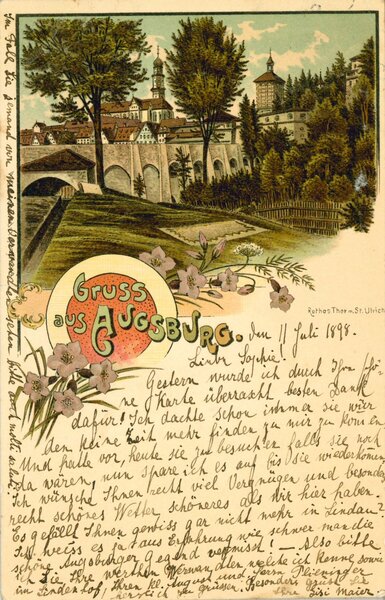 Gruss
aus Augsburg.
Rothes Thor m. St. Ulrich
den 11 Juli 1898.
Liebe Sophie!
Gestern wurde ich durch Ihre schö-
ne Karte überrascht besten Dank
dafür! Ich dachte schon immer sie wür
den keine Zeit mehr finden zu mir zu kommen
Und heute vor, heute sie zu besuchen falls sie noch
Da wären, nun spare ich es auf bis sie wiederkommen
Ich wünsche Ihnen recht viel Vergnügen und besonders
recht schönes Wetter schöneres als wir hier haben.
Es gefällt Ihnen gewiss gar nicht mehr in Lindau?
Ich weiss es ja aus Erfahrung wie schwer man die
schöne Augsburger Gegend vermisst! — Also bitte
ich Sie Ihre werthen Verwandten welche ich kenne sowie
im Lindenhof, Ihren August und Herrn
herzlich zu grüssen. Besonders grüsst Sie
Ihre Sisi Maier.
Im Fall Sie jemand von meinen Verwandten sehen bitte auch